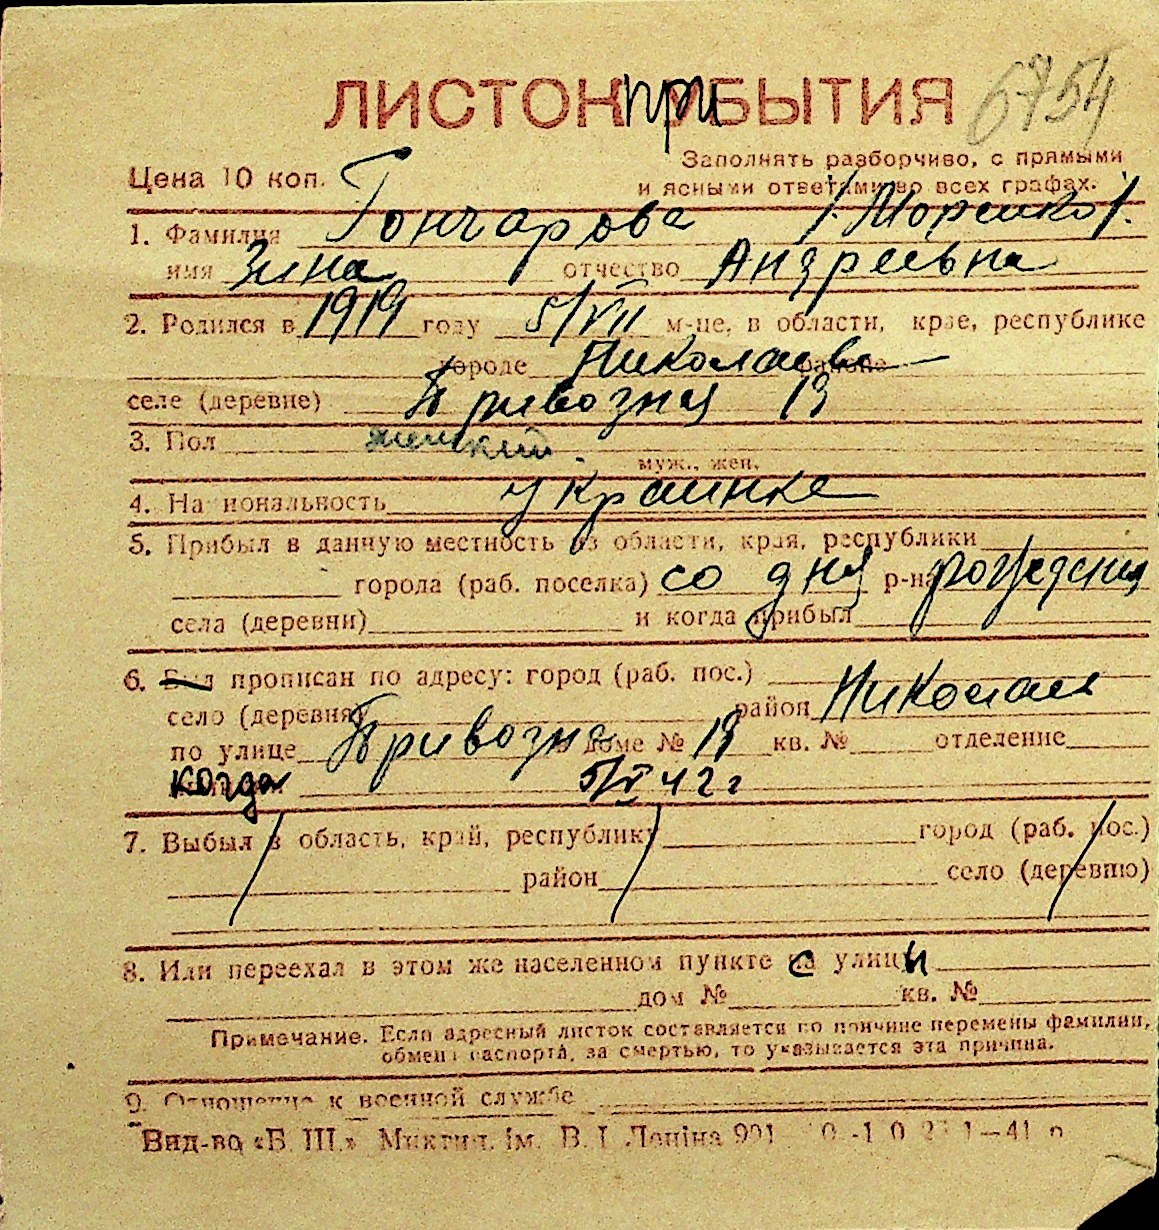 6754
ЛИСТОК ПРИБЫТИЯ
Заполнять разборчиво, с прямыми
Цена 10 коп. и ясными ответами во всех графах.
1. Фамилия Гончарова
имя Зина отчество Андреевна
2. Родился в 1919 году 5/VII м-це, в области, крае, республике
городе Николаев районе
селе (деревне) Привозная 13
3. Пол женский.
муж., жен.
4. Национальность украинка
5. Прибыл в данную местность из области, края, республики
города (раб. поселка) со дня р-на рождения
села (деревни) и когда прибыл
6. Был прописан по адресу: город (раб. пос.)
село (деревня) район Николаев
по улице Привозная доме № 13 кв. № отделение
когда 5/V 42 г
7. Выбыл в область, край, республику город (раб. пос.)
район село (деревню)
8. Или переехал в этом же населенном пункте с улицы
дом № кв. №
Примечание. Если адресный листок составляется по причине перемены фамилии,
обмена паспорта, за смертью, то указывается эта причина.
9. Отношение к военной службе
Вид-во «Б. Ш.» Микгил. ім. В. І. Леніна 991